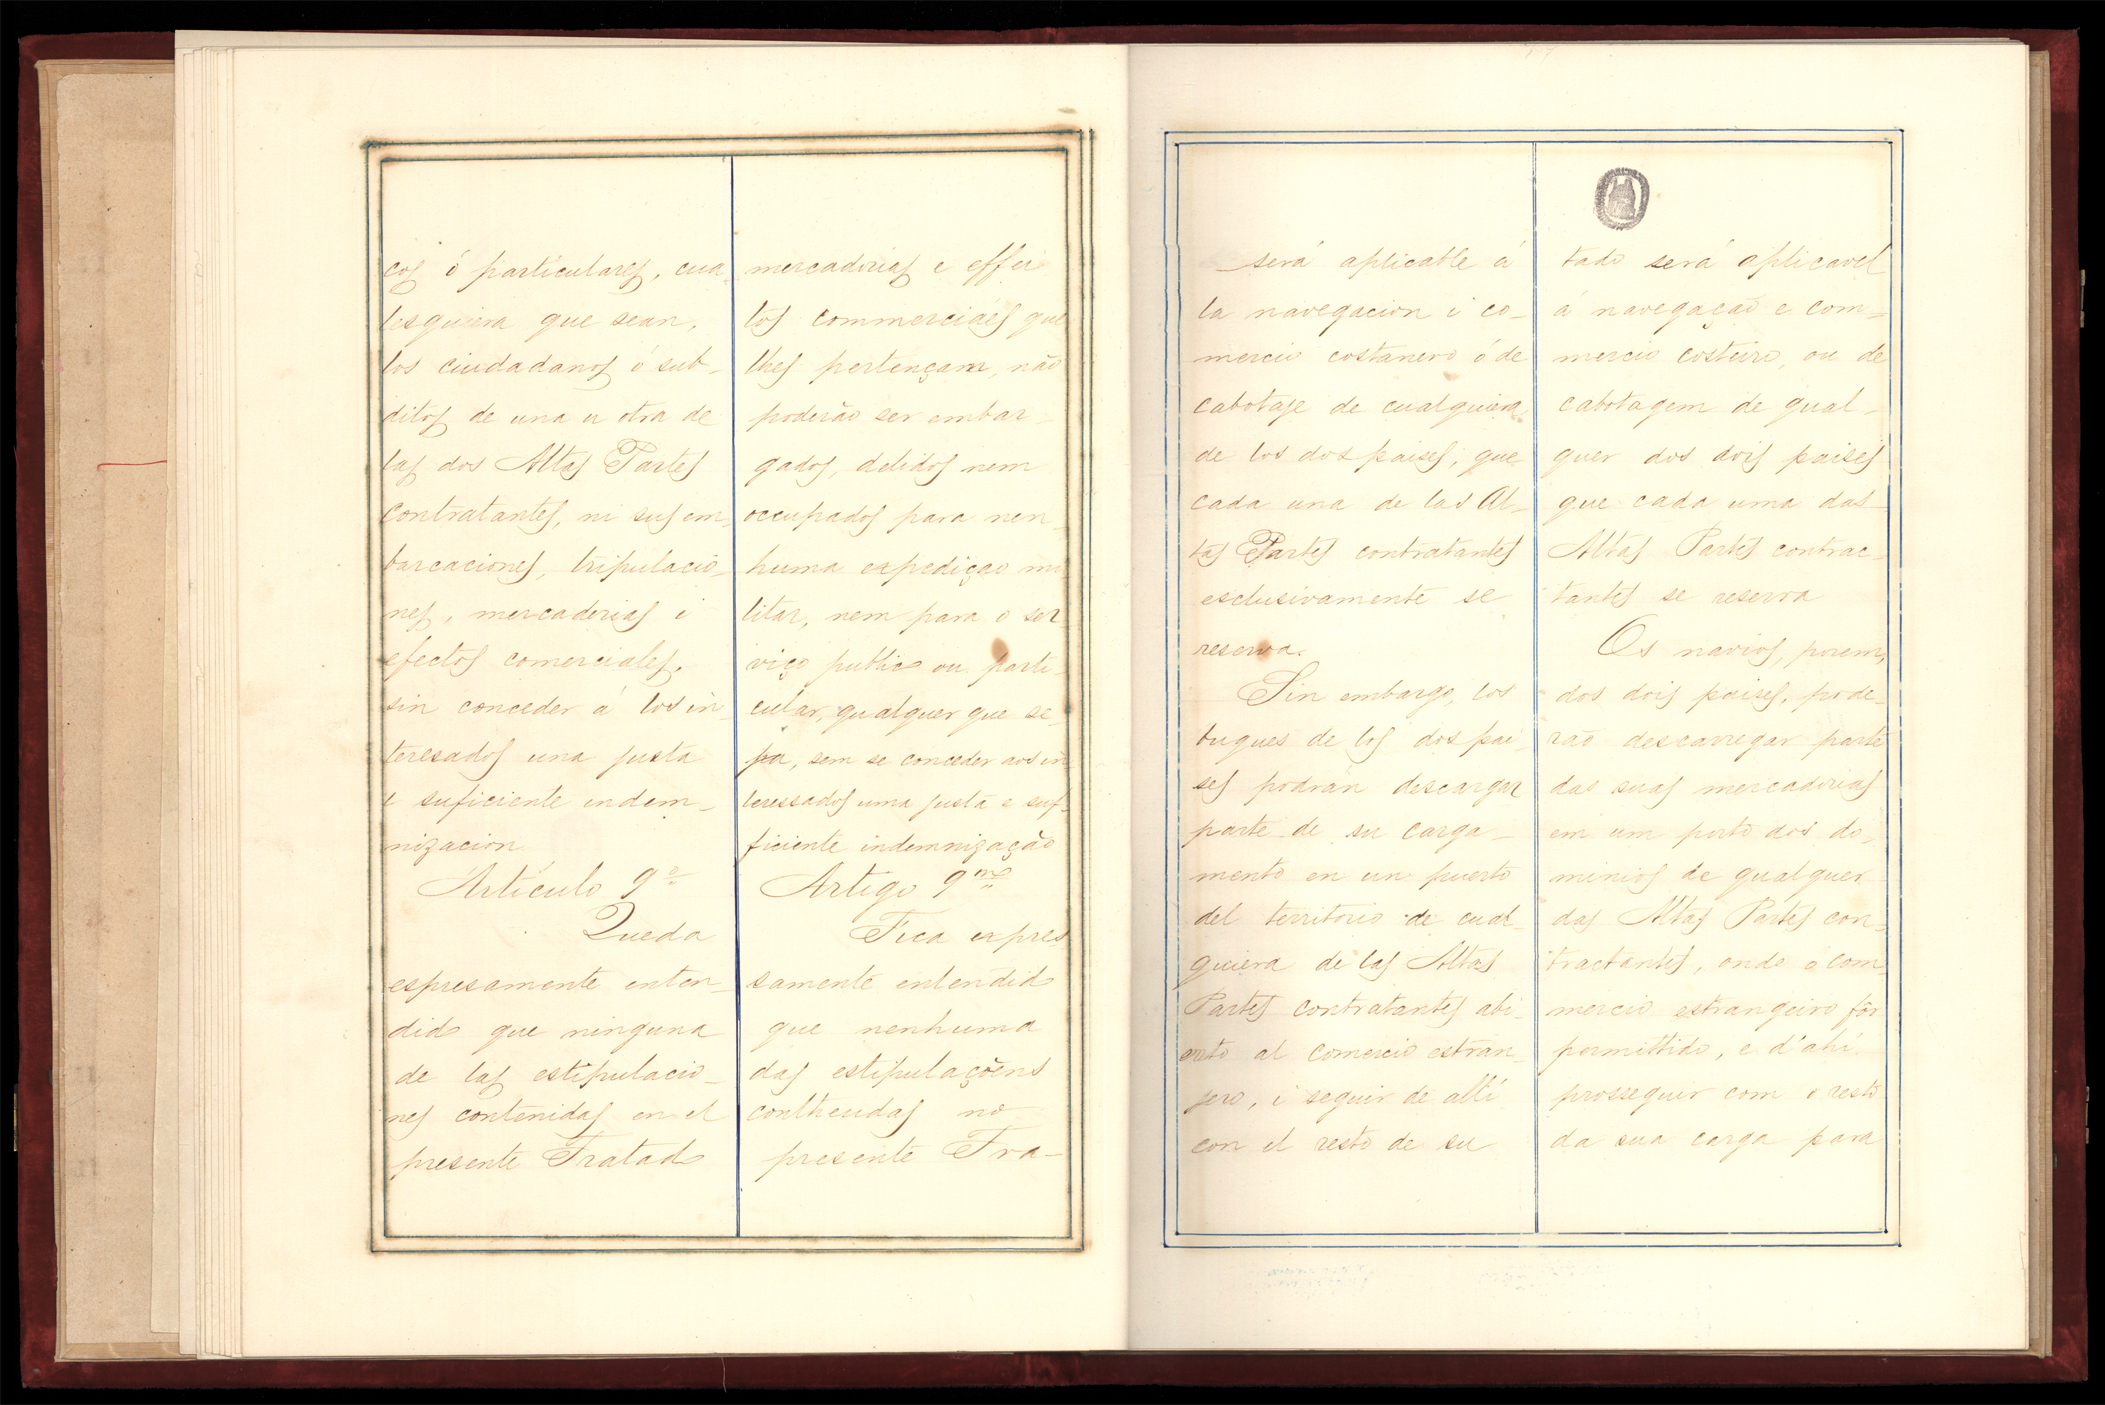 cos ó particulares, cua-
lesquiera que sean,
los ciudadanos ó súb-
ditos de una u otra de
las dos Altas Partes
contratantes, ni sus em-
barcaciones, tripulacio-
nes, mercaderias i
efectos comerciales,
sin conceder á los in-
teresados una justa
i suficiente indem-
nizacion.
Artículo 9º
Queda
espresamente enten-
dido que ninguna
de las estipulacio-
nes contenidas en el
presente Tratado
mercadorias e effei
tos commerciáes que
lhes pertençam, não
poderão ser embar-
gados, detidos nem
occupados para nen-
huma expediçao mi-
litar, nem para o ser
viço publico ou parti-
cular, qualquer que se-
ja, sem se conceder aos in-
teressados uma justa e suf-
ficiente indemnização
Artigo 9mo
Fica expres
samente entendido
que nenhuma
das estipulaçoens
contheudas no
presente Tra-
será aplicable á
la navegacion i co-
mercio costanero ó de
cabotaje de cualquiera
de los dos paises, que
cada una de las Al-
tas Partes contratantes
esclusivamente se
reserva.
Sin embargo, los
buques de los dos pai-
ses podrán descargar
parte de su carga-
mento en un puerto
del territorio de cual-
quiera de las Altas
Partes contratantes abi-
erto al comercio estran-
jero, i seguir de allí
con el resto de su
tado será aplicavel
á navegação e com=
mercio costeiro, ou de
cabotagem de qual-
quer dos dois paises
que cada uma das
Altas Partes contrac-
tantes se reserva
Os navios, porem,
dos dois paises, pode-
rão descarregar parte
das suas mercadorias
em um porto dos do-
minios de qualquer
das Altas Partes con-
tractantes, onde o com-
mercio estrangeiro fôr
permittido, e d'ahi
prosseguir com o resto
da sua carga para